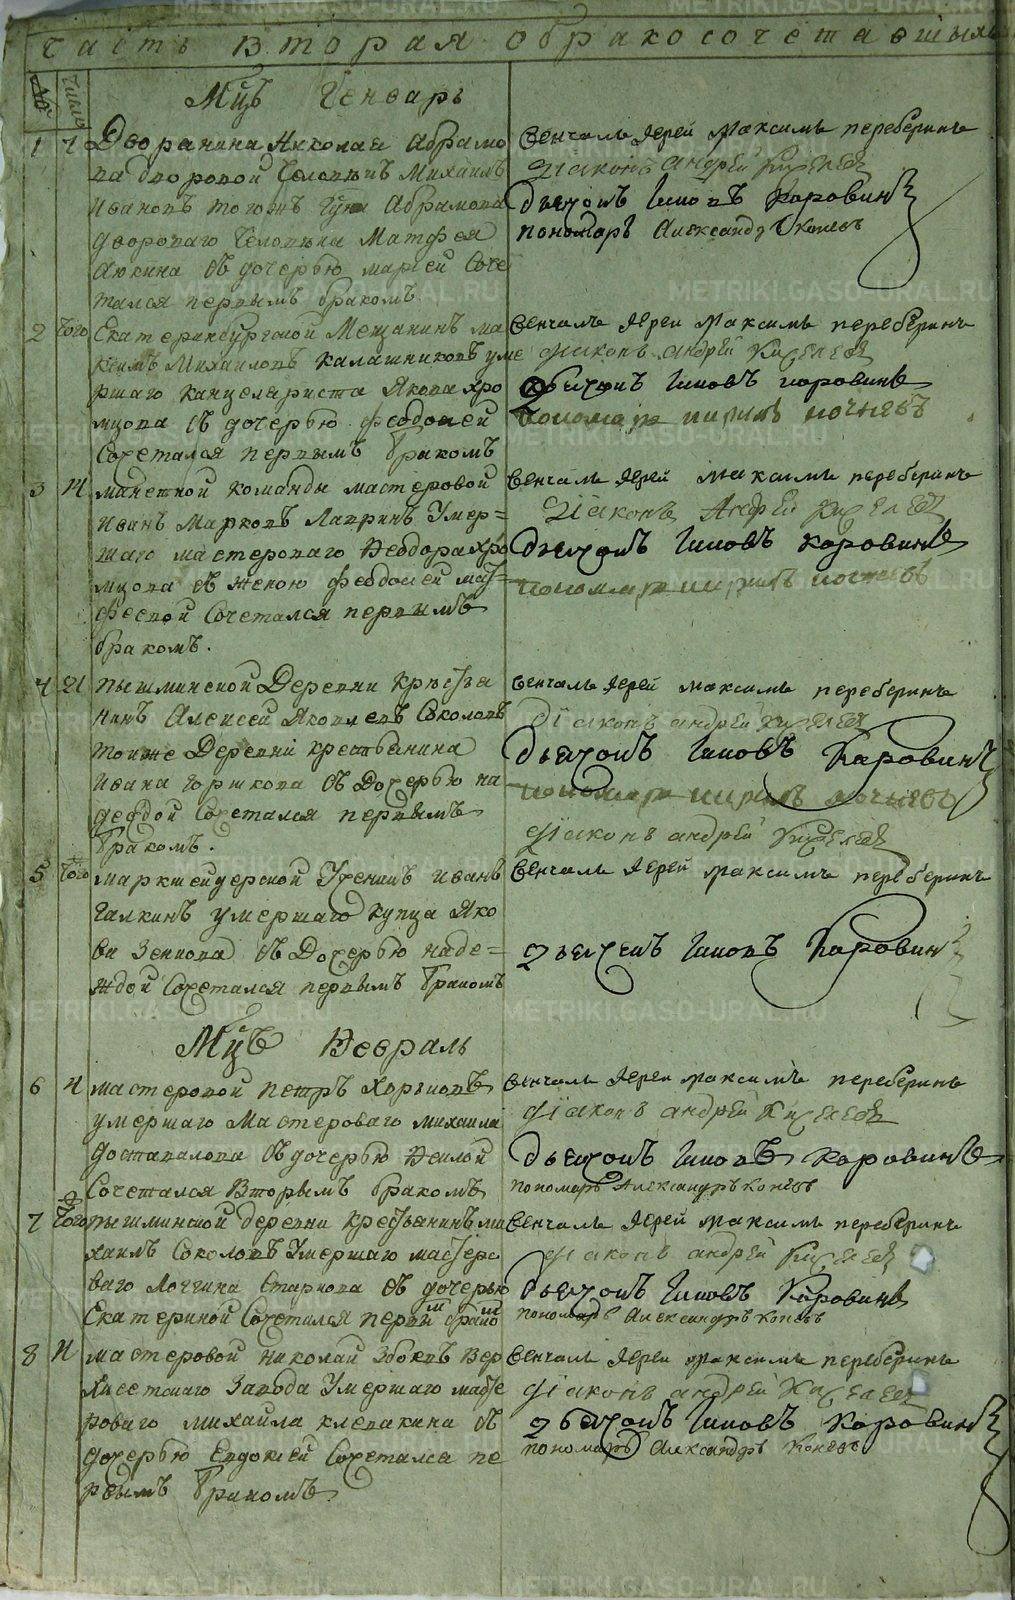 Часть вторая о бракосочетавшихся
№
Число
Мцъ Генварь
1 7 Дворянина Николая Абрамо
ва дворовой Человѣкъ Михаилъ
Ивановъ тогожъ Гдна Абрамова
двороваго Человѣка Матфея
Аюкина съ дочерью Марьей Соче
тался первымъ бракомъ
Венчалъ Иерей Максимъ переберинъ
Діаконъ андрей Киселевъ
дьячокъ Іиновъ Коровинъ
пономарь Александръ Коневъ
2 того Екатеринбургской Мещанинъ ма
ксимъ Михаиловъ Калашниковъ уме
ршаго канцеляриста Якова хро
мцова съ дочерью феодосией
Сочетался первымъ бракомъ
Венчалъ Иерей Максимъ переберинъ
діаконъ андрей Киселевъ
дьячокъ Іиновъ коровинъ
пономарь
3 14 манетной команды мастеровой
Иванъ Марковъ Лавринъ Умер=
шаго мастероваго Ѳеодора хро
мцова съ женою феодосией мат=
феевой Сочетался первымъ
бракомъ.
Венчалъ Иерей максимъ переберинъ
Діаконъ Андрей Киселевъ
дьячокъ Іиновъ коровинъ
пономарь
4 21 пышминской Деревни крестья
нинъ Алексей Яковлевъ Соколовъ
тойже Деревни крестьянина
Ивана Горшкова съ Дочерью на
деждой Сочетался первымъ
бракомъ.
венчалъ Иерей максимъ переберинъ
Діаконъ андрей Киселевъ
дьячокъ Іиновъ Коровинъ
пономарь
діаконъ андрей Киселевъ
5 того маркшейдерской Ученикъ иванъ
Галкинъ умершаго купца Яко
ва Зенкова съ Дочерью наде=
ждой Сочетался первымъ бракомъ
Венчалъ Иерей максимъ переберинъ
дьячекъ Іиновъ Коровинъ
Мцъ Февраль
6 4 мастеровой петръ Хорьковъ
умершаго Мастероваго михаила
Доставалова съ дочерью Неилой
Сочетался Вторымъ бракомъ
Венчалъ Иерей максимъ переберинъ
діаконъ андрей Киселевъ
дьячокъ Іиновъ коровинъ
пономарь Александръ Коневъ
7 того пышминской деревни крестьянинъ ми
хаилъ Соколовъ Умершаго мастеро
ваго Логгина Старкова съ дочерью
Екатериной Сочетался первым браком
Венчалъ Иерей максимъ переберинъ
діаконъ андрей Киселевъ
дьячокъ Іиновъ Коровинъ
пономарь Александръ Коневъ
8 11 мастеровой николай Збоевъ вер
хисетскаго Завода Умершаго масте
роваго михаила клевакина съ
дочерью Евдокией Сочетался пе
рвымъ бракомъ
Венчалъ Иерей максимъ переберинъ
діаконъ андрей Киселевъ
дьячокъ Іиновъ коровинъ
пономарь Александръ Коневъ
METRIKI.GASO-URAL.RU